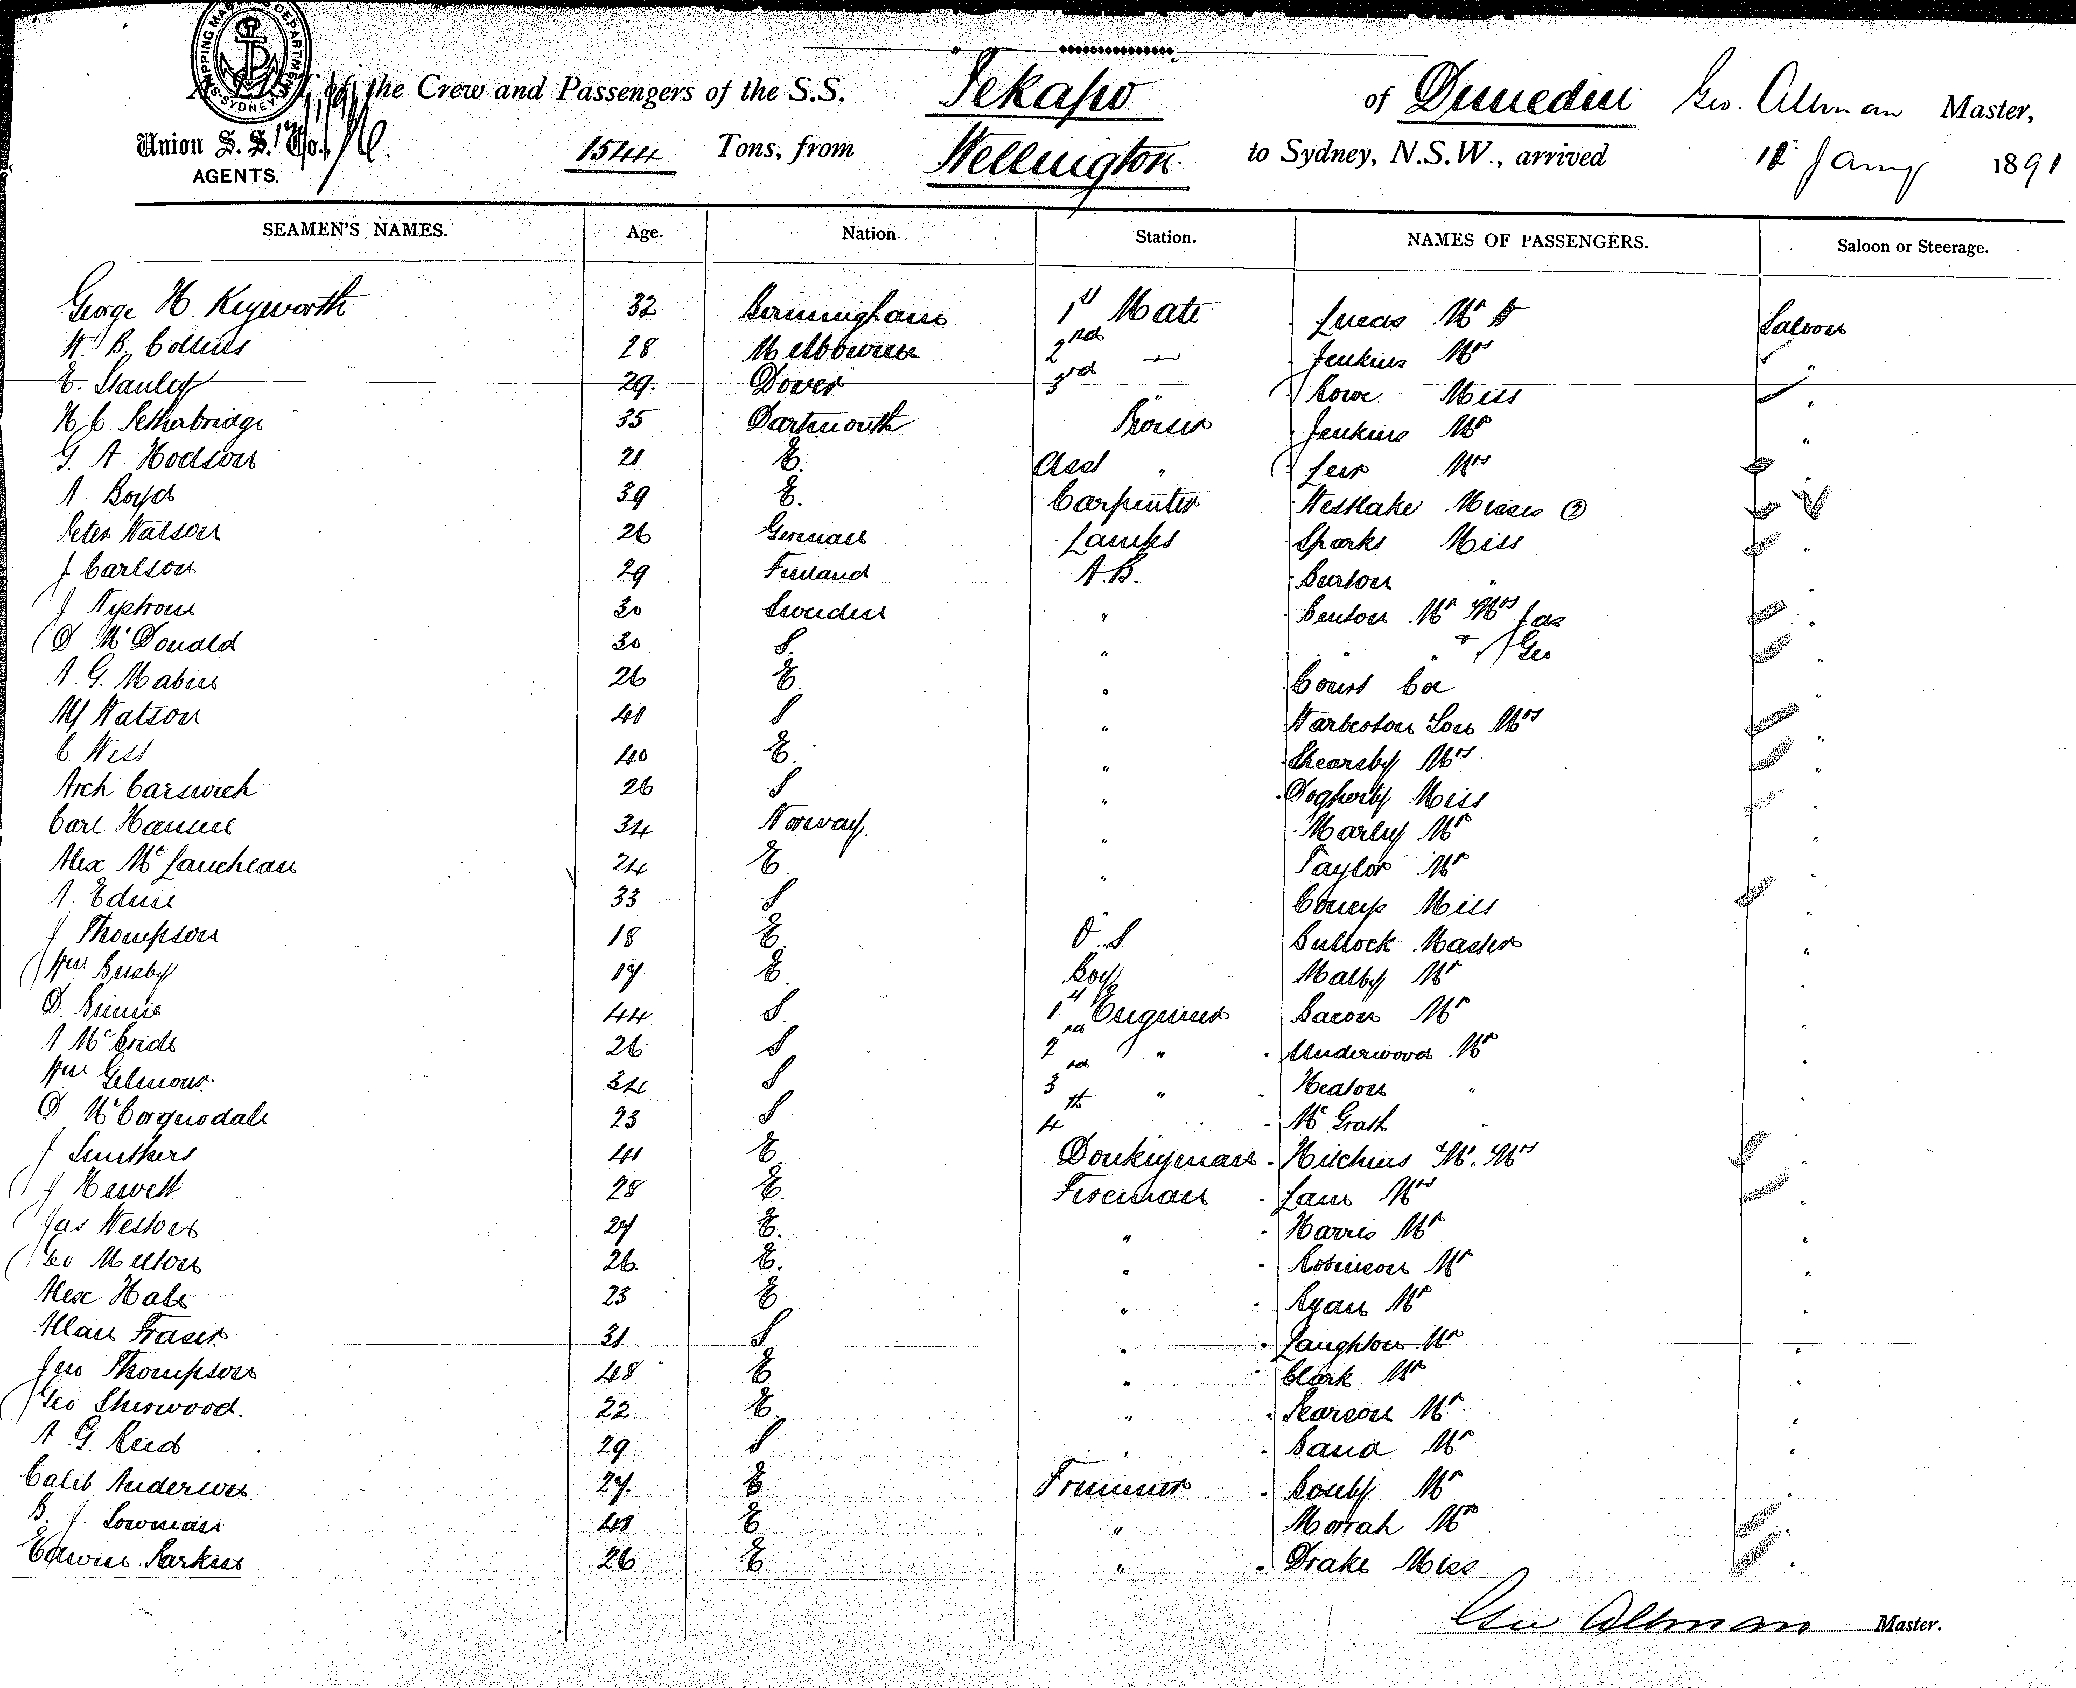 SHIPPING MASTER'S DEPARTMENT SYDNEY
of the Crew and Passengers of the S.S. Tekapo of Dunedin Geo. Allman Master,
Union S. S. Co.,
AGENTS.
1544 Tons, from Wellington to Sydney, N.S.W., arrived Jany 1891
SEAMEN'S NAMES. Age. Nation Station. NAMES OF PASSENGERS. Saloon or Steerage.
George H Keyworth 32 Birmingham 1st Mate Lucas Mr Saloon
W B Collins 28 Melbourne 2nd " Jenkins Mrs "
E. Stanley 29 Dover 3rd Rowe Miss "
H C Petherbridge 35 Dartmouth Purser Jenkins Mr "
G. A Hodson 21 E. Asst " Leir Mrs
A Boyd 39 E. Carpenter Westlake Misses (2)
Peter Watson 26 German Lamps Sparks Miss "
J Carlson 29 Finland A.B. Burton "
J Nystrom 30 Sweden " Benton Mr Mrs Jas "
D McDonald 30 S. " " " + Geo "
A. G. Mabin 26 E " Count Coe
W Watson 41 S " Warburton Son Mrs "
C West 40 E. " Shearsby Mrs "
Arch Carswick 26 S " Dogherty Miss "
Carl Hansen 34 Norway " Marley Mr "
Alex McLauchlan 24 E " Taylor Mr "
A. Edine 33 S Miss "
J Thompson 18 E O.S Bullock Master "
Wm Busby 17 E Boy Malby Mr "
D. Binnie 44 S 1st Engineer Bacon Mr "
A McBride 26 S 2nd " Underwood Mr "
Wm Gilmour 34 S 3rd " Heaton " "
D McCorquodale 23 S 4th McGrath "
J Smithers 41 E Donkeyman Hitchins Mr. Mrs "
J Hewett 28 E. Fireman Lane Mrs "
Jas Weston 27 E. " Harris Mr "
Geo Melton 26 E. " Robinson Mr "
Alex Hale 23 E " Ryan Mr "
Allan Fraser 31 S " Laughton Mr "
Jno Thompson 48 E " Clark Mr "
Geo Sherwood. 22 E " Pearson Mr "
A G Reid 29 S " Band Mr "
Caleb Anderson 27 E Trimmer Bouly Mr
B. J. Lowman 41 E " Morrah Mrs "
Edwin Parkin 26 E " Drake Miss "
Geo Allman Master.